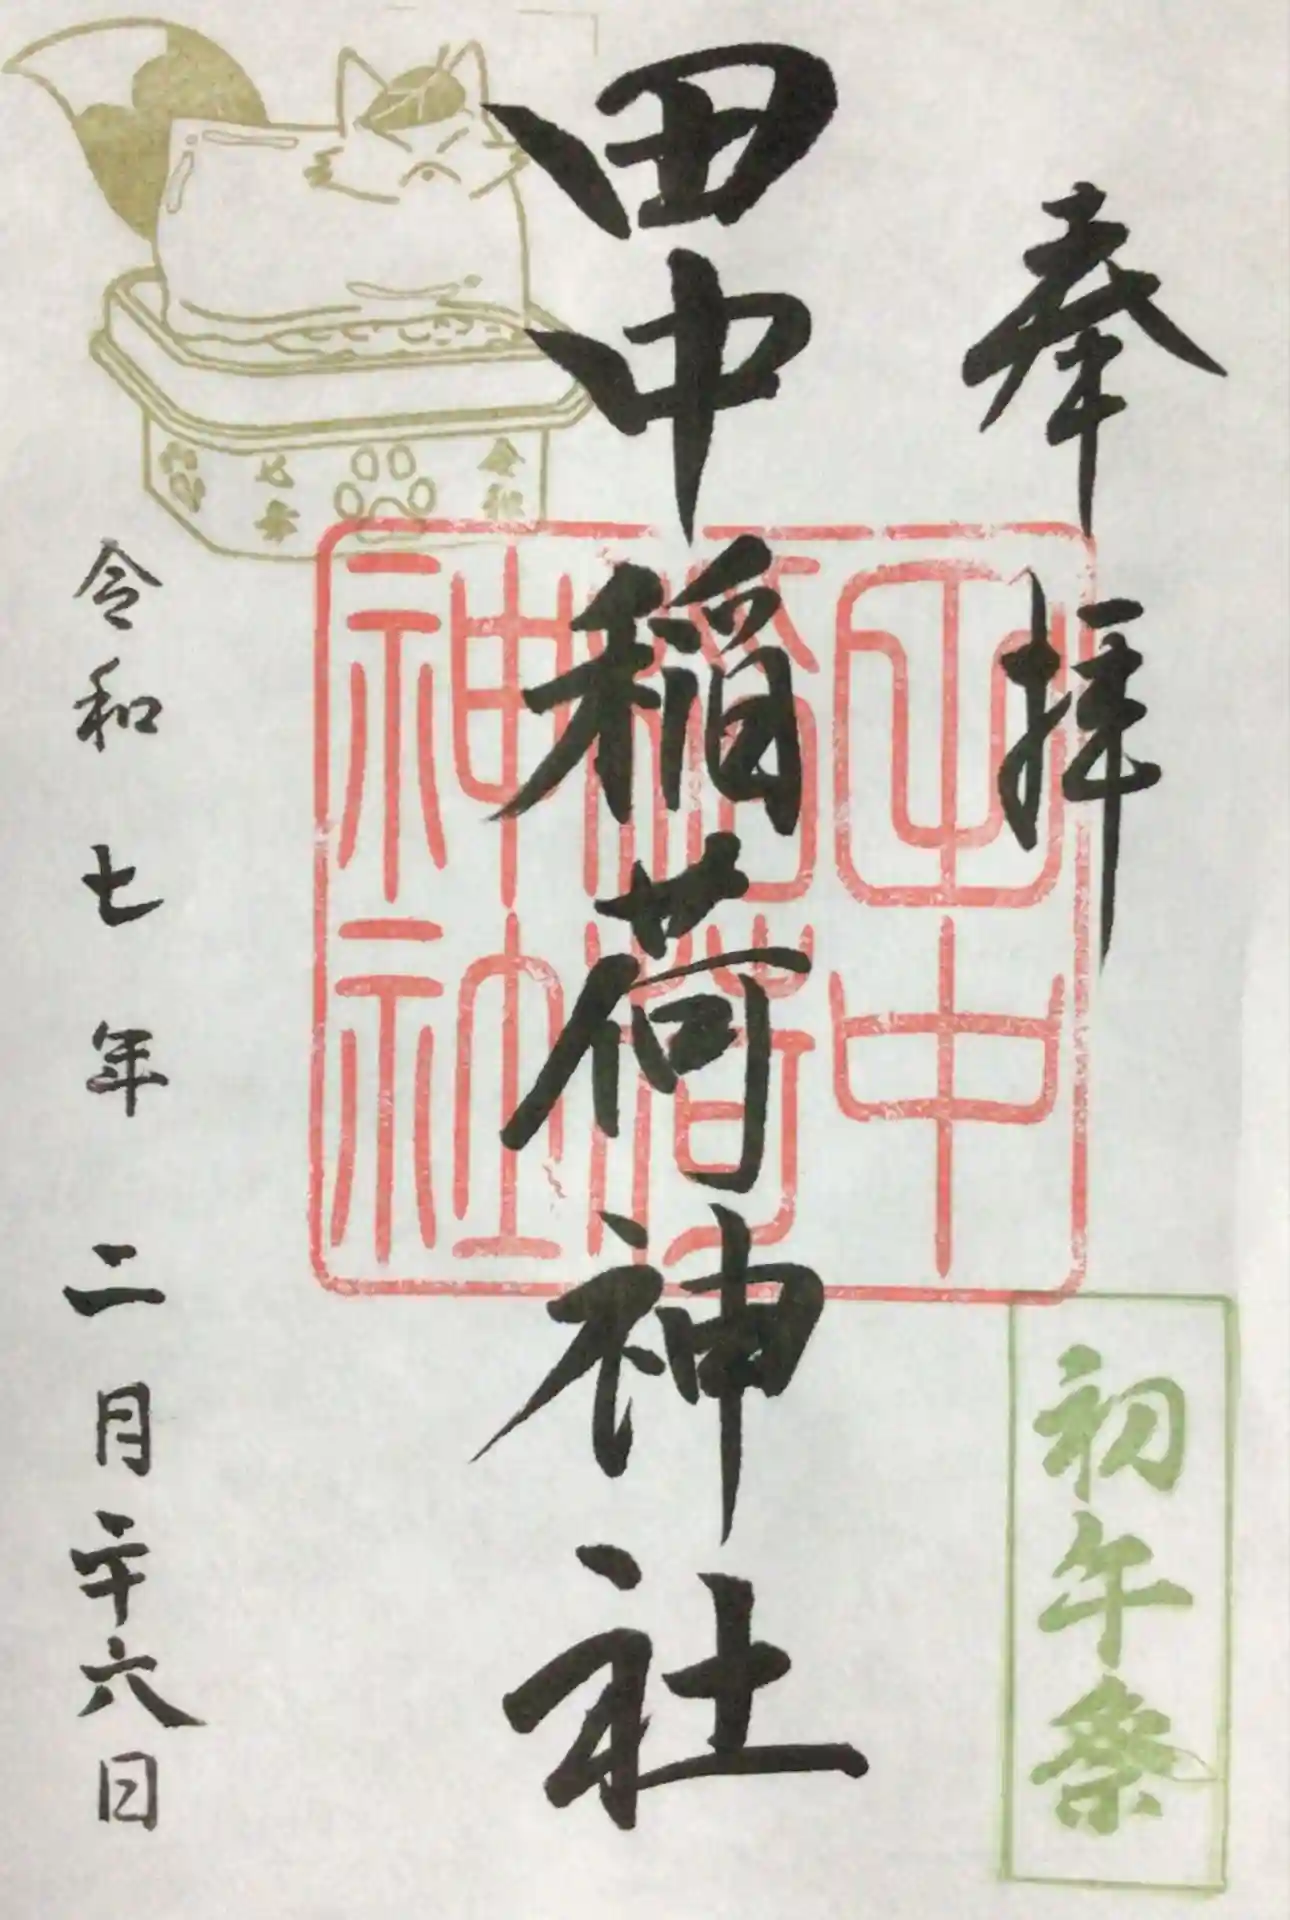 奉拝
初午祭
田中稲荷神社
田中
稲荷
神社
令和
七年
令和七年二月二十六日